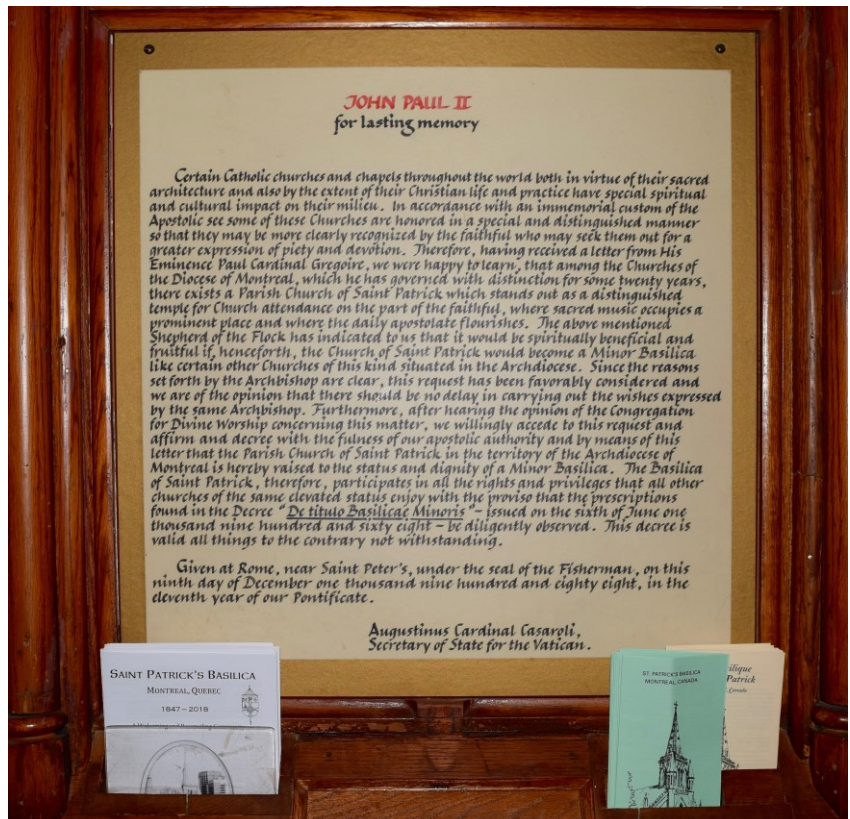 JOHN PAUL II
for lasting memory
Certain Catholic churches and chapels throughout the world both in virtue of their sacred
architecture and also by the extent of their Christian life and practice have special spiritual
and cultural impact on their milieu. In accordance with an immemorial custom of the
Apostolic see some of these Churches are honored in a special and distinguished manner
so that they may be more clearly recognized by the faithful who may seek them out for a
greater expression of piety and devotion. Therefore, having received a letter from His
Eminence Paul Cardinal Gregoire, we were happy to learn, that among the Churches of
the Diocese of Montreal, which he has governed with distinction for some twenty years,
there exists a Parish Church of Saint Patrick which stands out as a distinguished
temple for Church attendance on the part of the faithful, where sacred music occupies a
prominent place and where the daily apostolate flourishes. The above mentioned
Shepherd of the Flock has indicated to us that it would be spiritually beneficial and
fruitful if, henceforth, the Church of Saint Patrick would become a Minor Basilica
like certain other Churches of this kind situated in the Archdiocese. Since the reasons
set forth by the Archbishop are clear, this request has been favorably considered and
we are of the opinion that there should be no delay in carrying out the wishes expressed
by the same Archbishop. Furthermore, after hearing the opinion of the Congregation
for Divine Worship concerning this matter, we willingly accede to this request and
affirm and decree with the fulness of our apostolic authority and by means of this
letter that the Parish Church of Saint Patrick in the territory of the Archdiocese of
Montreal is hereby raised to the status and dignity of a Minor Basilica. The Basilica
of Saint Patrick, therefore, participates in all the rights and privileges that all other
churches of the same elevated status enjoy with the proviso that the prescriptions
found in the Decree "De titulo Basilicae Minoris" - issued on the sixth of June one
thousand nine hundred and sixty eight - be diligently observed. This decree is
valid all things to the contrary not withstanding.
Given at Rome, near Saint Peter's, under the seal of the Fisherman, on this
ninth day of December one thousand nine hundred and eighty eight, in the
eleventh year of our Pontificate.
Augustinus Cardinal Casaroli,
Secretary of State for the Vatican.
SAINT PATRICK'S BASILICA
MONTREAL, QUEBEC
1847 – 2018
ST. PATRICK'S BASILICA
MONTREAL, CANADA
Patrick